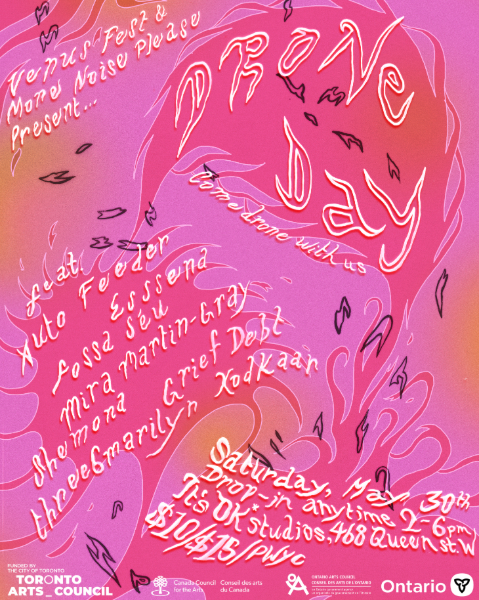 Venus Fest &
More Noise Please
Present...
DRONE
DAY
Come drone with us
feat.
Auto Feeder
Esssena
fossa Seu
Mira Martin-Gray
Shemona Grief Debt
three6marilyn Xodkaar
Saturday, May 30th
Drop-in anytime 2-6pm
It's OK* studios, 468 Queen St. W
$10/$15/pwyc
FUNDED BY
THE CITY OF TORONTO
TORONTO
ARTS_COUNCIL
Canada Council
for the Arts
Conseil des arts
du Canada
ONTARIO ARTS COUNCIL
CONSEIL DES ARTS DE L'ONTARIO
Ontario